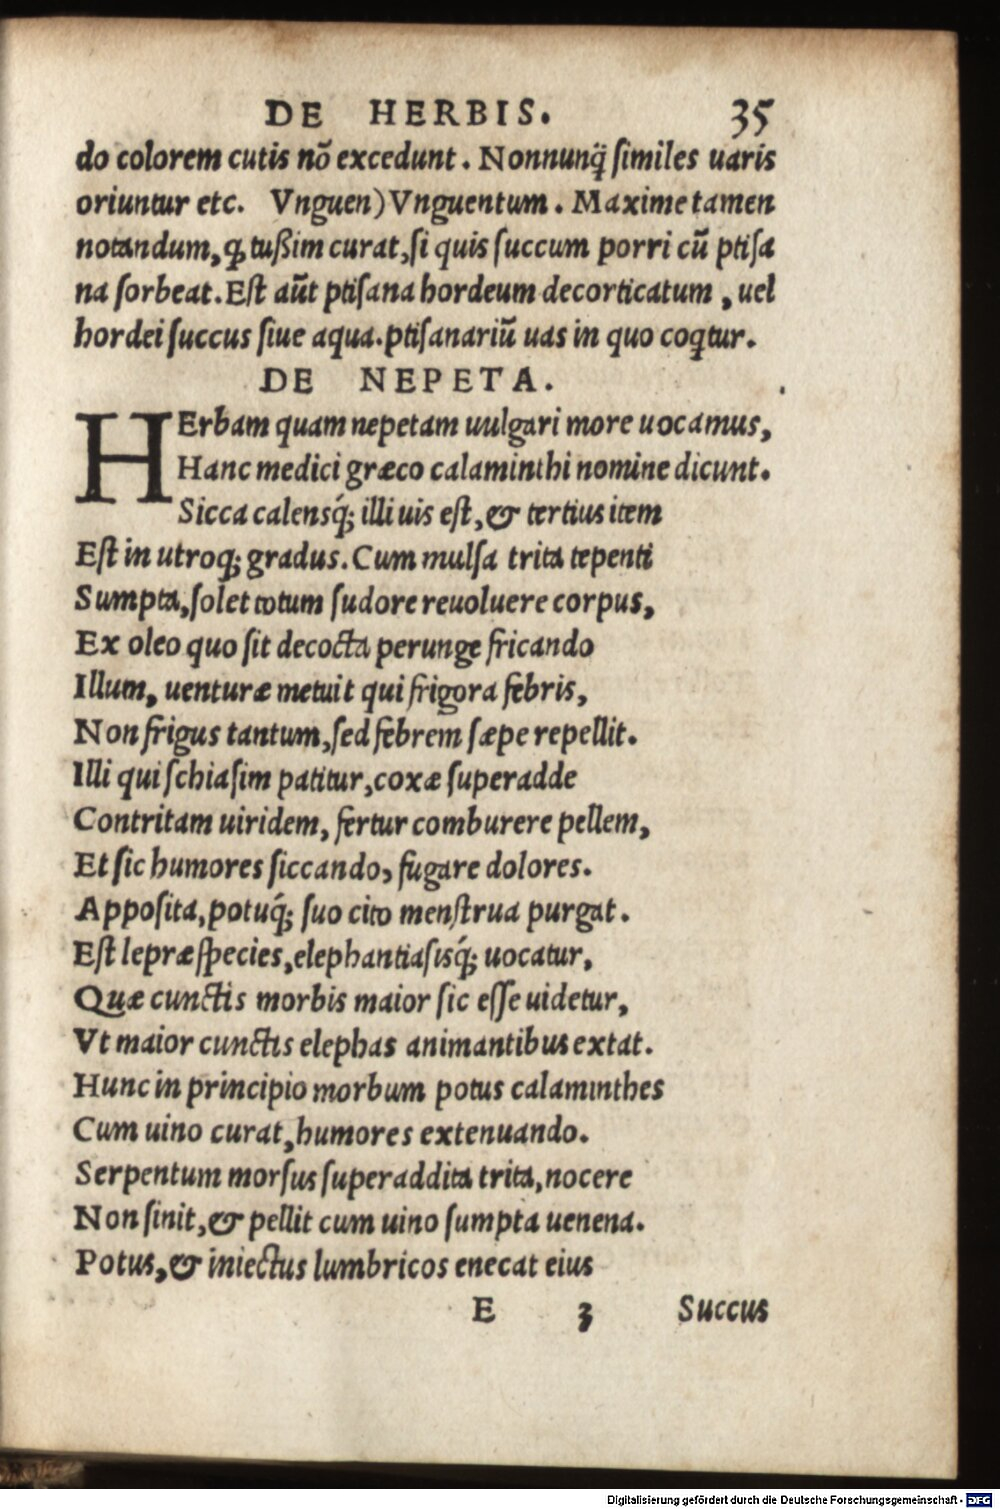 DE HERBIS. 35
do colorem cutis nō excedunt. Nonnunq̃ ſimiles uaris
oriuntur etc. Vnguen) Vnguentum. Maxime tamen
notandum, ꝙ tußim curat, ſi quis ſuccum porri cū ptiſa
na ſorbeat. Eſt aūt ptiſana hordeum decorticatum, uel
hordei ſuccus ſiue aqua. ptiſanariū uas in quo coq̃tur.
DE NEPETA.
HErbam quam nepetam uulgari more uocamus,
Hanc medici græco calaminthi nomine dicunt.
Sicca calensq́; illi uis eſt, & tertius item
Eſt in utroq; gradus. Cum mulſa trita tepenti
Sumpta, ſolet totum ſudore reuoluere corpus,
Ex oleo quo ſit decocta perunge fricando
Illum, uenturæ metuit qui frigora febris,
Non frigus tantum, ſed febrem ſæpe repellit.
Illi qui ſchiaſim patitur, coxæ ſuperadde
Contritam uiridem, fertur comburere pellem,
Et ſic humores ſiccando, fugare dolores.
Appoſita, potuq́; ſuo cito menſtrua purgat.
Eſt lepræ ſpecies, elephantiaſisq́; uocatur,
Quæ cunctis morbis maior ſic eſſe uidetur,
Vt maior cunctis elephas animantibus extat.
Hunc in principio morbum potus calaminthes
Cum uino curat, humores extenuando.
Serpentum morſus ſuperaddita trita, nocere
Non ſinit, & pellit cum uino ſumpta uenena.
Potus, & iniectus lumbricos enecat eius
E 3 Succus
Digitalisierung gefördert durch die Deutsche Forschungsgemeinschaft - DFG